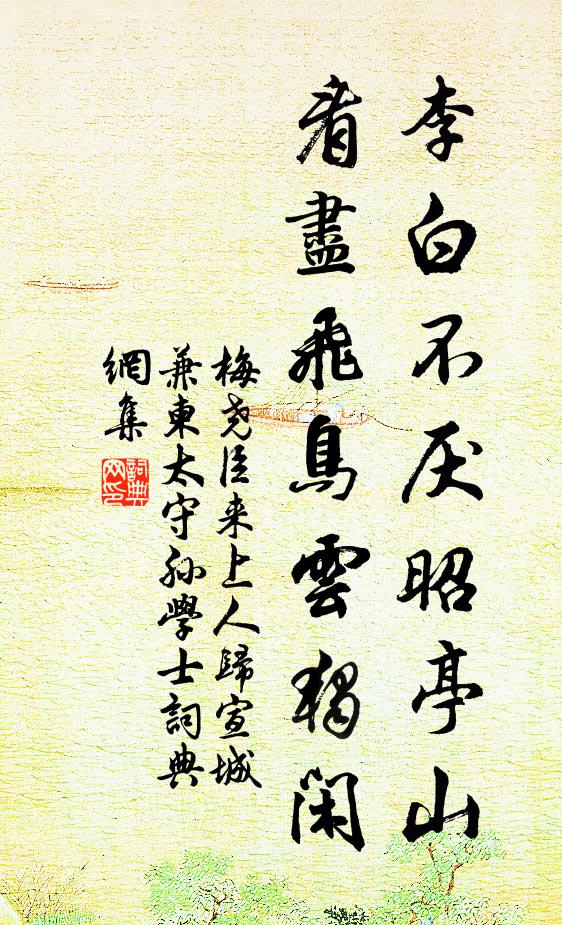 李白不厌昭亭山
看盡飛鳥雲獨閑
梅堯臣来上人歸宣城
兼東太守孫學士詞典
網集
詞典
网印